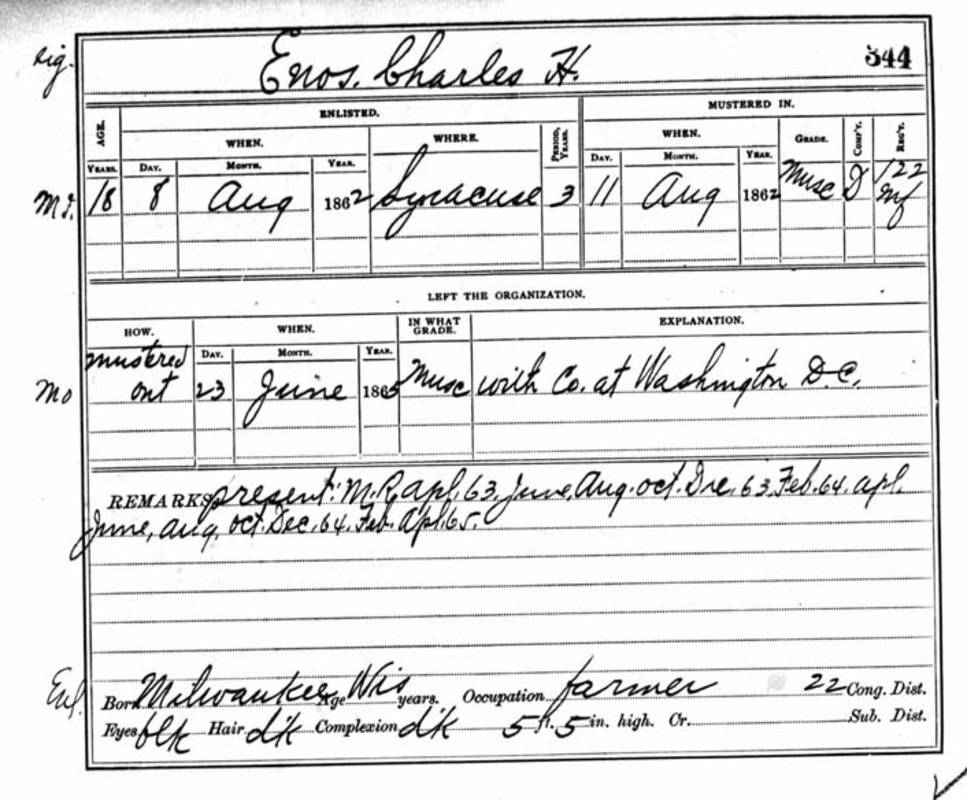 sig. Enos. Charles H. 344
ENLISTED. MUSTERED IN.
AGE. WHEN. WHERE. PERIOD, YEARS. WHEN. GRADE. COMP'Y. REG'T.
YEARS. DAY. MONTH. YEAR. DAY. MONTH. YEAR.
18 8 Aug 1862 Syracuse 3 11 Aug 1862 Musc D 122 Inf
LEFT THE ORGANIZATION.
HOW. WHEN. IN WHAT GRADE. EXPLANATION.
DAY. MONTH. YEAR.
mustered
Mo out 23 June 1865 Musc with Co. at Washington D.C.
REMARKS present: M.R. apl. 63. June, Aug. oct. Dec. 63. Feb. 64. apl.
June, aug, oct. Dec. 64. Feb. Apl. 65.
Born Milwaukee Wis Age years. Occupation farmer 22 Cong. Dist.
Eyes blk Hair dk Complexion dk 5 ft. 5 in. high. Cr. Sub. Dist.